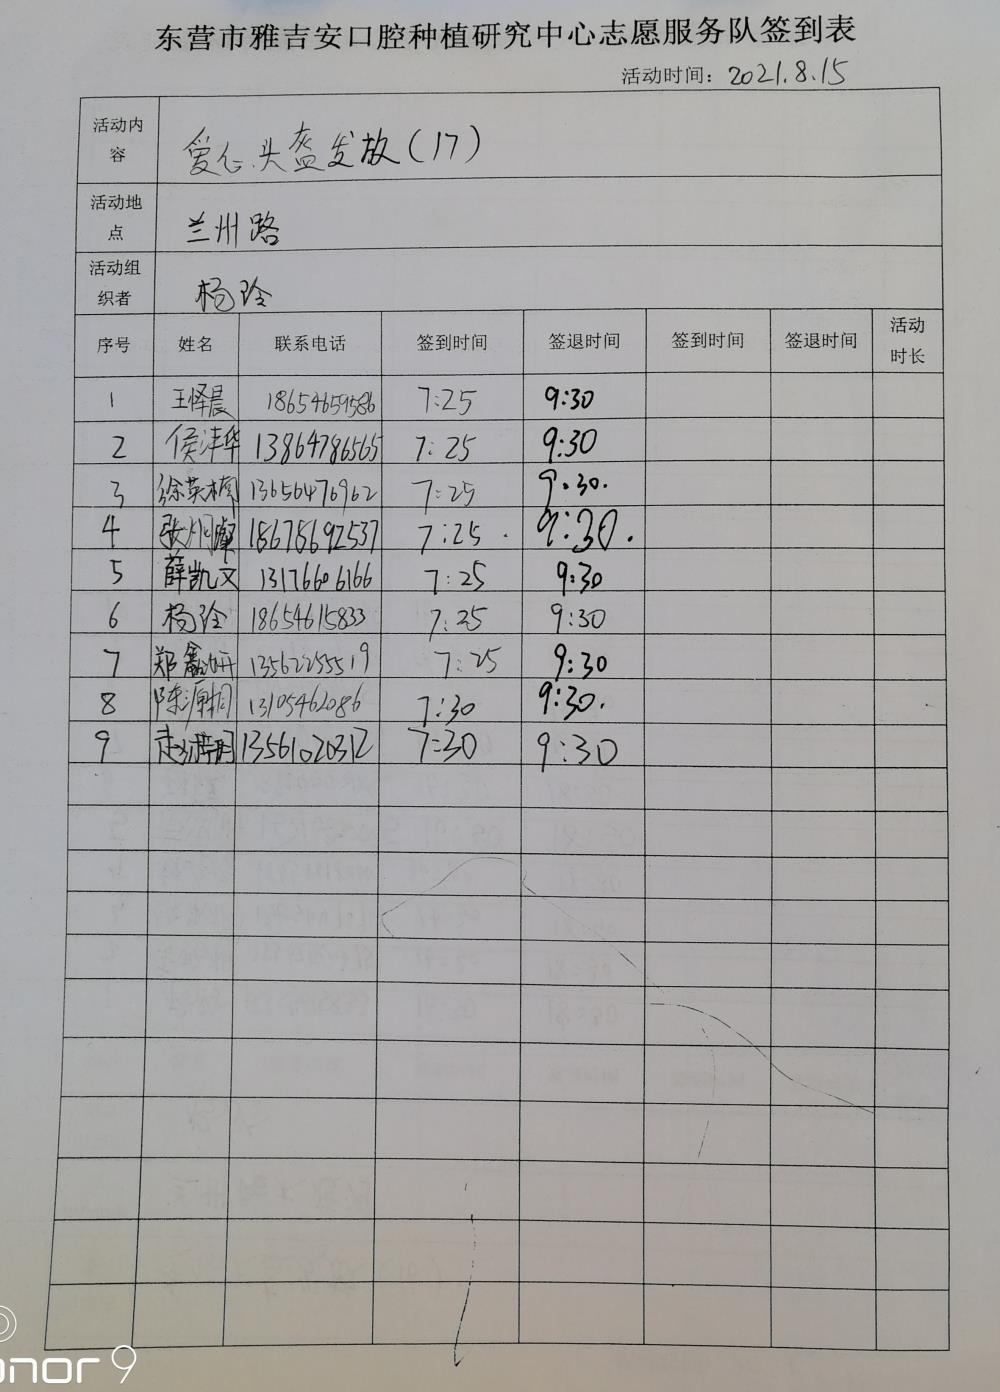 东营市雅吉安口腔种植研究中心志愿服务队签到表
活动时间：2021.8.15
活动内容 爱心头盔发放(17)
活动地点 兰州路
活动组织者 杨玲
序号 姓名 联系电话 签到时间 签退时间 签到时间 签退时间 活动时长
1 王怿晨 18654659586 7:25 9:30
2 侯沣华 13864786565 7:25 9:30
3 徐英楠 13656476962 7:25 9.30.
4 张炯璨 18678692537 7:25. 9:30.
5 薛凯文 13176606166 7:25 9:30
6 杨玲 18654615833 7:25 9:30
7 郑鑫妍 13562255519 7:25 9:30
8 陈源桐 13105462086 7:30 9:30.
9 13561020312 7:30 9:30
honor 9